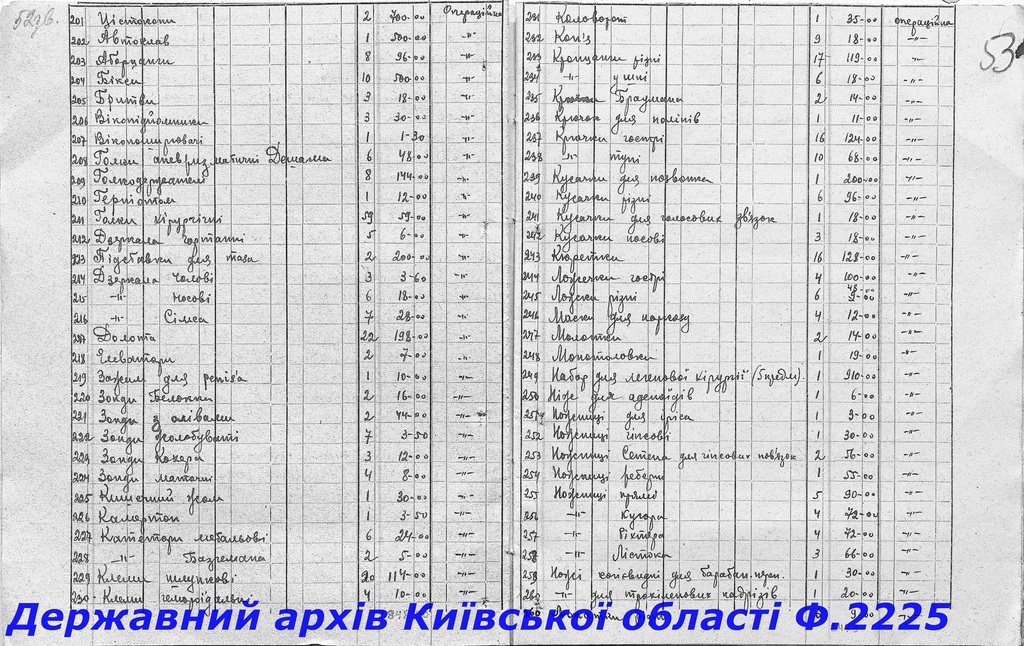 52зв.
201 Цістоскоп 2 700-00 Операційна
202 Автоклав 1 500-00 -"-
203 Аборцанги 8 96-00 -"-
204 Бікси 10 500-00 -"-
205 Бритви 3 18-00 -"-
206 Вікопідйомники 3 30-00 -"-
207 Вікорозширювачі 1 1-30 -"-
208 Голки аневризматичні Дешама 6 48-00 -"-
209 Голкодержателі 8 144-00 -"-
210 Герніотом 1 12-00 -"-
211 Голки хірургічні 59 59-00 -"-
212 Дзеркала гортанні 5 6-00 -"-
213 Підставки для таза 2 200-00 -"-
214 Дзеркала лобові 3 3-60 -"-
215 -"- носові 6 18-00 -"-
216 -"- Сімса 7 28-00 -"-
217 Долота 22 198-00 -"-
218 Елеватори 2 7-00 -"-
219 Зажим для 1 10-00 -"-
220 Зонди Белокка 2 16-00 -"-
221 Зонди з оливами 2 44-00 -"-
222 Зонди жолобуваті 7 3-50 -"-
223 Зонди Кохера 3 12-00 -"-
224 Зонди маточні 4 8-00 -"-
225 Кишечний жом 1 30-00 -"-
226 Камертон 1 3-50 -"-
227 Катетори метальові 6 24-00 -"-
228 -"- Баземана 2 5-00 -"-
229 Клеми шлункові 20 114-00 -"-
230 Клеми гемороїдальні 4 10-00 -"-
53
231 Коловорот 1 35-00 операційна
232 Коп'я 9 18-00 -"-
233 Корнцанги різні 17 119-00 -"-
234 -"- ушні 6 18-00 -"-
235 Браумана 2 14-00 -"-
236 Крючок для поліпів 1 11-00 -"-
237 Крючки гострі 16 124-00 -"-
238 -"- тупі 10 68-00 -"-
239 Кусачки для позвонка 1 200-00 -"-
240 Кусачки різні 6 96-00 -"-
241 Кусачки для голосових зв'язок 1 18-00 -"-
242 Кусачки носові 3 18-00 -"-
243 Кюретки 16 128-00 -"-
244 Ложечки гострі 4 100-00 -"-
245 Ложки різні 6 48-00 -"-
246 Маски для наркозу 4 12-00 -"-
247 Молотки 2 14-00 -"-
248 1 19-00 -"-
249 Набор для легенової хірургії (5 предм). 1 910-00 -"-
250 Ніж для аденоїдів 1 6-00 -"-
251 Ножиці для 1 3-00 -"-
252 Ножиці гіпсові 1 30-00 -"-
253 Ножиці Сетена для гіпсових пов'язок 2 56-00 -"-
254 Ножиці реберні 1 55-00 -"-
255 Ножиці прямі 5 90-00 -"-
256 -"- Купера 4 72-00 -"-
257 -"- Ріхтера 4 72-00 -"-
258 -"- Лістона 3 66-00 -"-
259 Ножі копієвидні для барабан. 1 30-00 -"-
260 -"- для надрізів 1 20-00 -"-
Державний архів Київської області Ф.2225